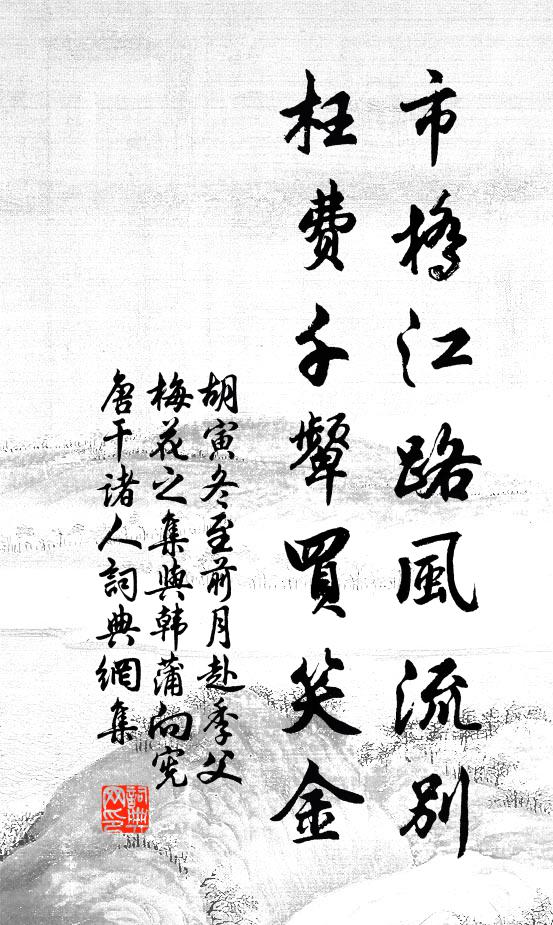 市橋江路風流別
枉費千顰買笑金
胡寅冬至前月赴季父
梅花之集與韩蒲向宪
唐干诸人詞典網集